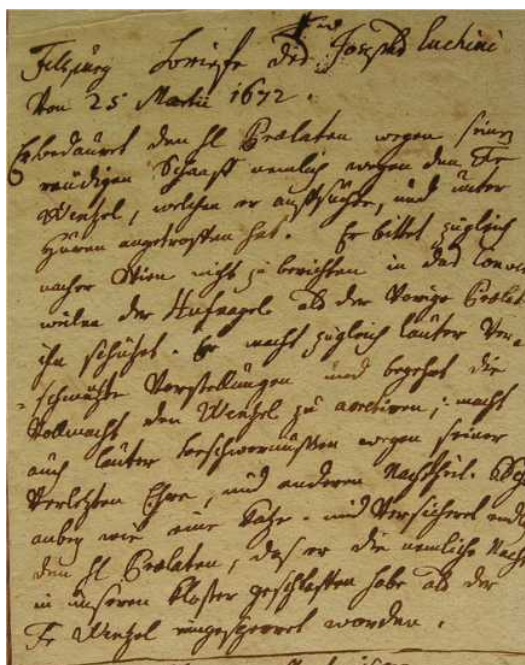 Brieffe des Joseph Luchini
Von 25 Martii 1672.
Er bedauret den hl Prælaten wegen seinen
reudigen Schaaff nemlich wegen den Fr
Wenzel, welchen er außsuchte, und unter
Huren angetroffen hat. Er bittet zugleich
nacher Wien nicht zu berichten in das
weilen der Hufnagel als der Vorige Prælat
ihn schützet. Er macht zugleich lauter Ver-
schmizte Vorstellungen und begehrt die
Vollmacht den Wenzel zu arretiren, macht
auch lauter beschwernußen wegen seiner
Verletzten Ehre, und anderen Nachtheil.
anbey wie eine Katze. und Versicheret
den hl Prælaten, daß er die nemliche Nacht
in unseren Kloster geschlaffen habe als der
Fr Wenzel eingesperret worden.